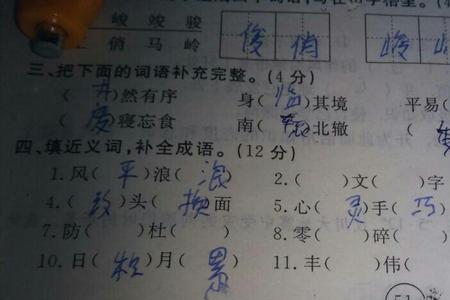 峻 竣 骏
俏 马 岭 俊 俏 峻
三、把下面的词语补充完整。(4分)
(井)然有序 身(临)其境 平易(
(废)寝忘食 南(辕)北辙 (
四、填近义词,补全成语。(12分)
1.风(平)浪(浪) 2.( )文( )字
4.(改)头(换)面 5.心(灵)手(巧)
7.防( )杜( ) 8.零( )碎( )
10.日(积)月(累) 11.丰( )伟( )